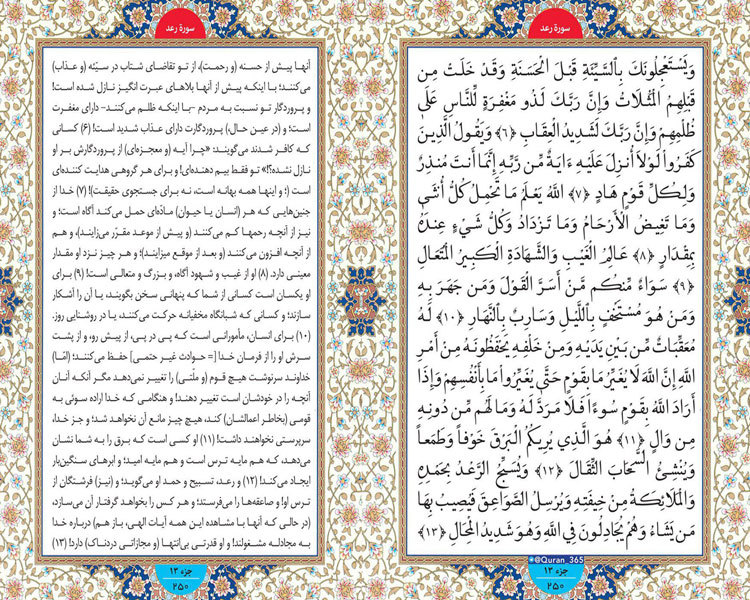 سورهٔ رعد
وَيَسْتَعْجِلُونَكَ بِالسَّيِّئَةِ قَبْلَ الْحَسَنَةِ وَقَدْ خَلَتْ مِن
قَبْلِهِمُ الْمَثُلَاتُ وَإِنَّ رَبَّكَ لَذُو مَغْفِرَةٍ لِّلنَّاسِ عَلَىٰ
ظُلْمِهِمْ وَإِنَّ رَبَّكَ لَشَدِيدُ الْعِقَابِ ﴿۶﴾ وَيَقُولُ الَّذِينَ
كَفَرُوا لَوْلَا أُنزِلَ عَلَيْهِ ءَايَةٌ مِّن رَّبِّهِ إِنَّمَا أَنتَ مُنذِرٌ
وَلِكُلِّ قَوْمٍ هَادٍ ﴿۷﴾ اللَّهُ يَعْلَمُ مَا تَحْمِلُ كُلُّ أُنثَىٰ
وَمَا تَغِيضُ الْأَرْحَامُ وَمَا تَزْدَادُ وَكُلُّ شَيْءٍ عِندَهُ
بِمِقْدَارٍ ﴿۸﴾ عَالِمُ الْغَيْبِ وَالشَّهَادَةِ الْكَبِيرُ الْمُتَعَالِ
﴿۹﴾ سَوَاءٌ مِّنكُم مَّنْ أَسَرَّ الْقَوْلَ وَمَن جَهَرَ بِهِ
وَمَنْ هُوَ مُسْتَخْفٍ بِاللَّيْلِ وَسَارِبٌ بِالنَّهَارِ ﴿۱۰﴾ لَهُ
مُعَقِّبَاتٌ مِّن بَيْنِ يَدَيْهِ وَمِنْ خَلْفِهِ يَحْفَظُونَهُ مِنْ أَمْرِ
اللَّهِ إِنَّ اللَّهَ لَا يُغَيِّرُ مَا بِقَوْمٍ حَتَّىٰ يُغَيِّرُوا مَا بِأَنفُسِهِمْ وَإِذَا
أَرَادَ اللَّهُ بِقَوْمٍ سُوءًا فَلَا مَرَدَّ لَهُ وَمَا لَهُم مِّن دُونِهِ
مِن وَالٍ ﴿۱۱﴾ هُوَ الَّذِي يُرِيكُمُ الْبَرْقَ خَوْفًا وَطَمَعًا
وَيُنشِئُ السَّحَابَ الثِّقَالَ ﴿۱۲﴾ وَيُسَبِّحُ الرَّعْدُ بِحَمْدِهِ
وَالْمَلَائِكَةُ مِنْ خِيفَتِهِ وَيُرْسِلُ الصَّوَاعِقَ فَيُصِيبُ بِهَا
مَن يَشَاءُ وَهُمْ يُجَادِلُونَ فِي اللَّهِ وَهُوَ شَدِيدُ الْمِحَالِ ﴿۱۳﴾
@Quran_365
جزء ۱۳
۲۵۰
سورهٔ رعد
آنها پیش از حسنه (و رحمت)، از تو تقاضای شتاب در سیّئه (و عذاب)
می‌کنند؛ با اینکه پیش از آنها بلاهای عبرت انگیز نازل شده است!
و پروردگار تو نسبت به مردم -با اینکه ظلم می‌کنند- دارای مغفرت
است؛ و (در عین حال،) پروردگارت دارای عذاب شدید است! (۶) کسانی
که کافر شدند می‌گویند: «چرا آیه (و معجزه‌ای) از پروردگارش بر او
نازل نشده؟!» تو فقط بیم دهنده‌ای! و برای هر گروهی هدایت کننده‌ای
است (؛ و اینها همه بهانه است، نه برای جستجوی حقیقت)! (۷) خدا از
جنین‌هایی که هر (انسان یا حیوان) مادّه‌ای حمل می‌کند آگاه است؛ و
نیز از آنچه رحمها کم می‌کنند (و پیش از موعد مقرّر می‌زایند)، و هم
از آنچه افزون می‌کنند (و بعد از موقع میزایند)؛ و هر چیز نزد او مقدار
معینی دارد. (۸) او از غیب و شهود آگاه، و بزرگ و متعالی است! (۹) برای
او یکسان است کسانی از شما که پنهانی سخن بگویند، یا آن را آشکار
سازند؛ و کسانی که شبانگاه مخفیانه حرکت می‌کنند، یا در روشنایی روز.
(۱۰) برای انسان، مأمورانی است که پی در پی، از پیش رو، و از پشت
سرش او را از فرمان خدا [= حوادث غیر حتمی] حفظ می‌کنند؛ (امّا)
خداوند سرنوشت هیچ قوم (و ملّتی) را تغییر نمی‌دهد مگر آنکه آنان
آنچه را در خودشان است تغییر دهند! و هنگامی که خدا اراده سوئی به
قومی (بخاطر اعمالشان) کند، هیچ چیز مانع آن نخواهد شد؛ و جز خدا،
سرپرستی نخواهند داشت! (۱۱) او کسی است که برق را به شما نشان
می‌دهد، که هم مایه ترس است و هم مایه امید؛ و ابرهای سنگین‌بار
ایجاد می‌کند! (۱۲) و رعد، تسبیح و حمد او می‌گوید؛ و (نیز) فرشتگان از
ترس او! و صاعقه‌ها را می‌فرستد؛ و هر کس را بخواهد گرفتار آن می‌سازد،
(در حالی که آنها با مشاهده این همه آیات الهی، باز هم) درباره خدا
به مجادله مشغولند! و او قدرتی بی‌انتها (و مجازاتی دردناک) دارد! (۱۳)
جزء ۱۳
۲۵۰